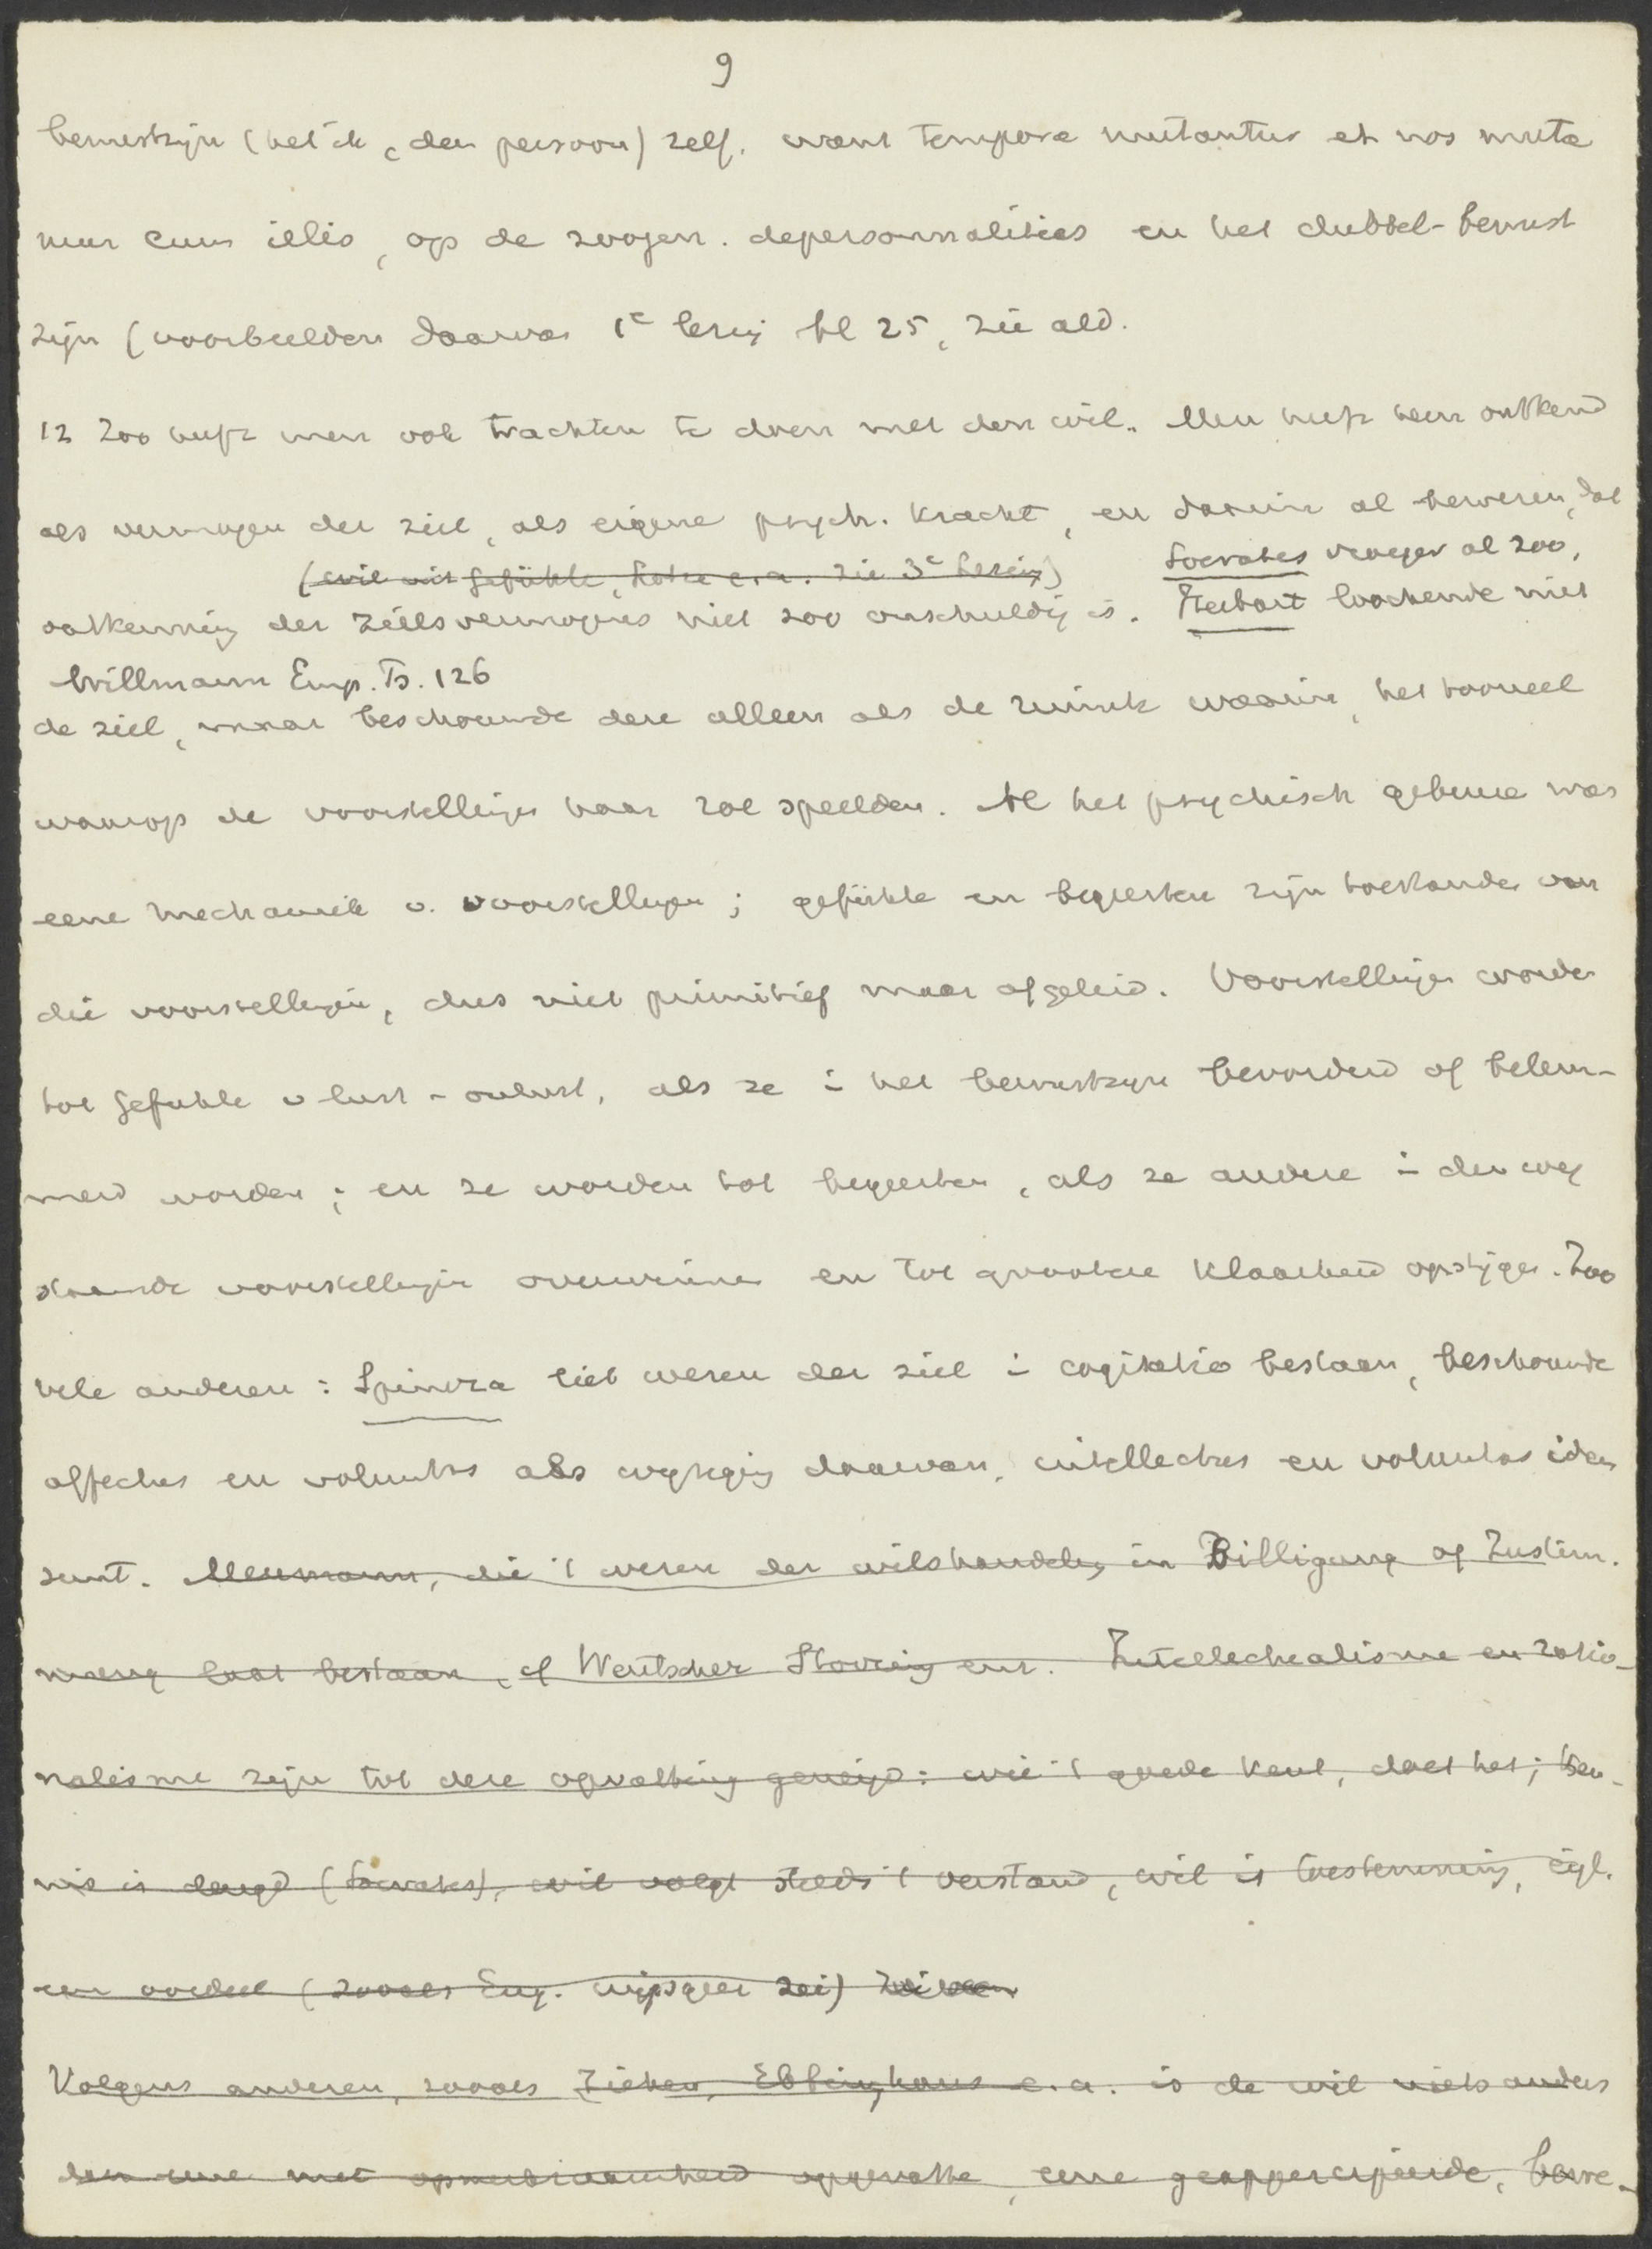 9
bewustzijn (het ik, den persoon) zelf. want tempora mutantur et nos muta
mur cum illis, op de zoogen. depersonnalisties en het dubbel-bewust
zijn (voorbeelden daarvan 1e lezing bl 25, zie ald.
12 Zoo heeft men ook trachten te doen met den wil. Men heeft hem ontkend
als vermogen der ziel, als eigene psych. kracht, en daarin al bewezen, dat
(wil uit gefühle, e.a. zie 3e lezing) Socrates vroeger al zoo,
ontkenning der zielsvermogens niet zoo onschuldig is. Herbart loochende niet
Willmann Emp. Ps. 126
de ziel, maar beschouwde deze alleen als de ruimte waarin, het tooneel
waarop de voorstellingen haar rol speelden. Al het psychisch gebeure was
eene mechaniek v. voorstellingen; gefühle en begeerten zijn toestanden van
die voorstellingen, dus niet primitief maar afgeleid. Voorstellingen worden
tot gefühle v lust - onlust, als ze i het bewustzijn bevorderd of belem-
merd worden; en ze worden tot begeerten, als ze andere i den weg
staande voorstellingen overwinnen en tot grootere klaarheid opstijgen. Zoo
vele anderen: Spinoza liet wezen der ziel i cogitatio bestaan, beschouwde
affectus en voluntas als wijziging daarvan, intellectus en voluntas idem
sunt. Meumann, die 't wezen der wilshandeling in Billigung of Zustim.
mung laat bestaan, cf Wentscher Störring enz. Intellectualisme en ratio-
nalisme zijn tot deze opvatting geneigd: wie 't goede kent, doet het; ken-
nis is deugd (Socrates), wil volgt steeds 't verstand, wil is toestemming, eigl.
een oordeel (zooals Eng. wijsgeer zei)
Volgens anderen, zooals Ziehen, Ebbinghaus e.a. is de wil niets anders
dan eene met opmerkzaamheid opgevatte, eene geappercipieerde, bewe-